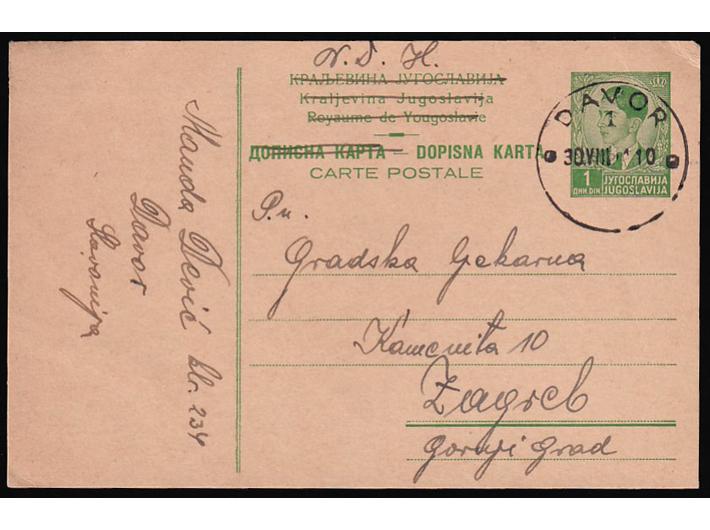 N. D. H.
КРАЉЕВИНА ЈУГОСЛАВИЈА
Kraljevina Jugoslavija
Royaume de Yougoslavie
ДОПИСНА КАРТА — DOPISNA KARTA
CARTE POSTALE
DAVOR
1
30 VIII 1 10
1
ДИН. DIN
ЈУГОСЛАВИЈА
JUGOSLAVIJA
P.n.
Gradska Ljekarna
Kamenita 10
Zagreb
gornji grad
Manda Dević kbr. 234
Davor
Slavonija